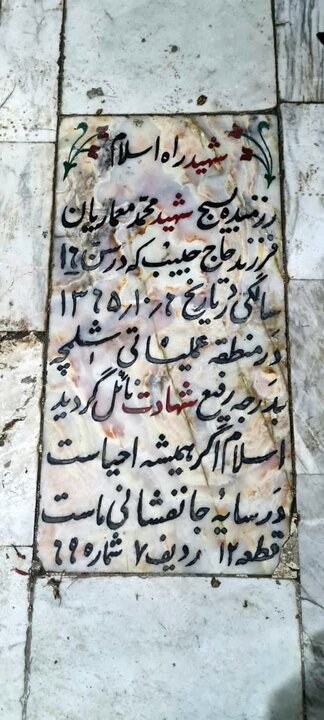 شهید راه اسلام
رزمنده بسیج شهید محمد معماریان
فرزند حاج حبیب که در سن ۱۶
سالگی در تاریخ ۱۳۶۵/۱۰/۹
در منطقه عملیاتی شلمچه
بدرجه رفیع شهادت نائل گردید
اسلام اگر همیشه احیا است
در سایه جانفشانی ماست
قطعه ۱۲ ردیف ۷ شماره ۶۹